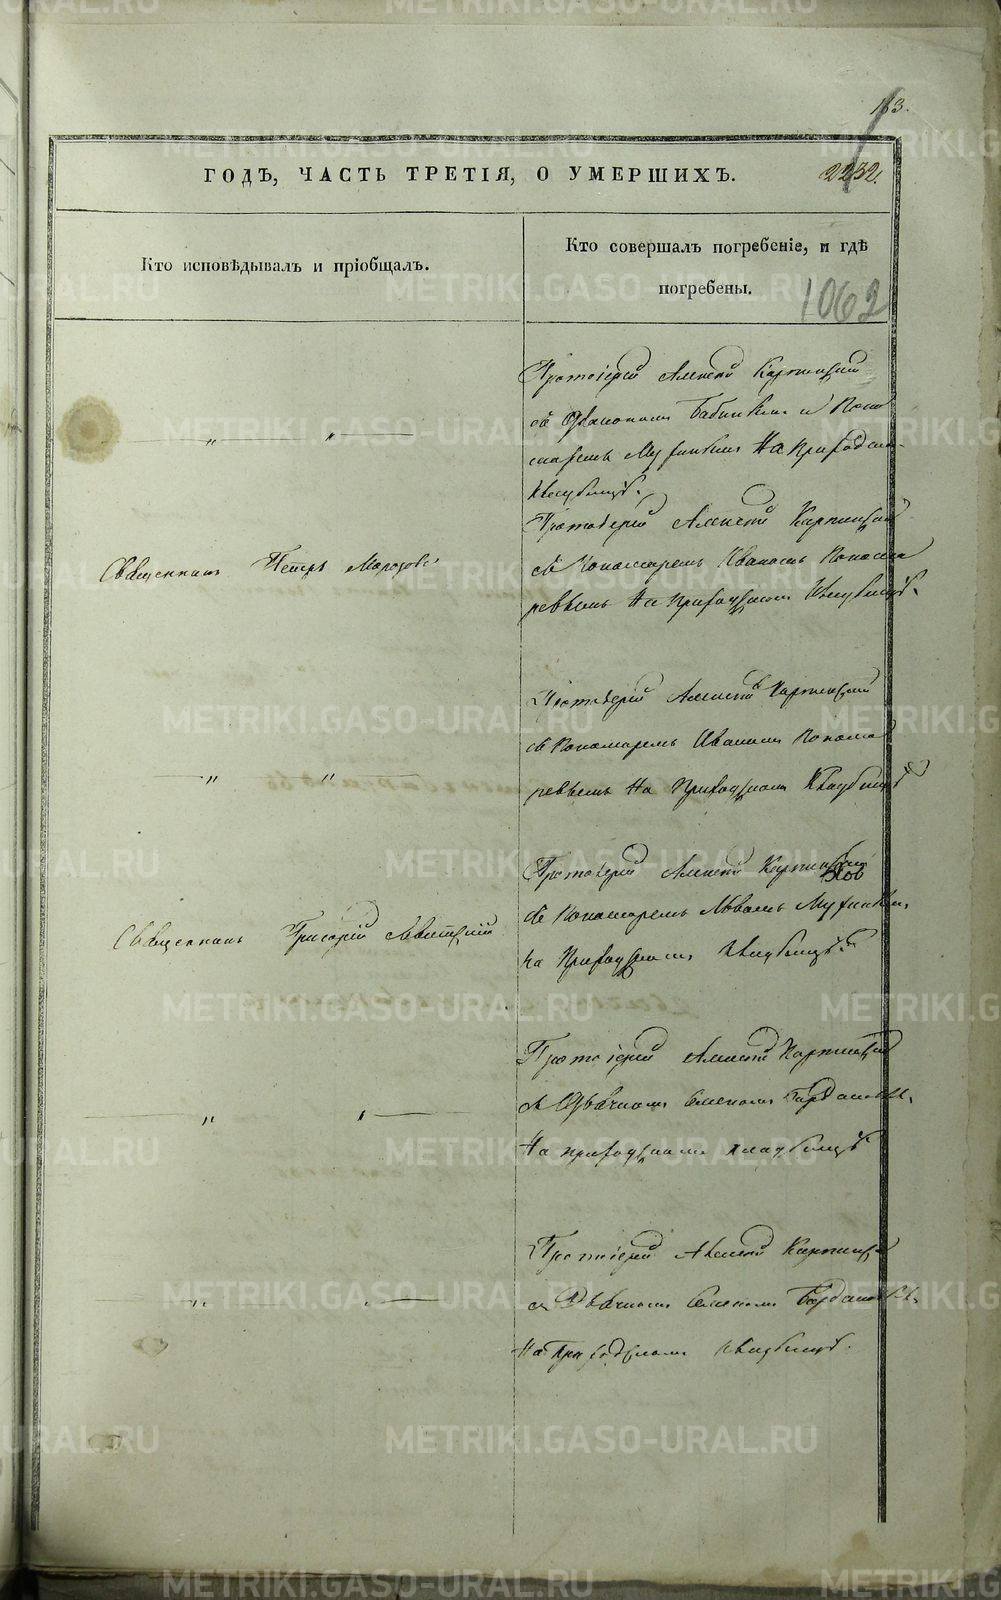 113.
ГОДЪ, ЧАСТЬ ТРЕТІЯ, О УМЕРШИХЪ.
2232.
Кто исповѣдывалъ и пріобщалъ.
Кто совершалъ погребеніе, и гдѣ
погребены.
1062
Протоіерей Алексій Карпинскій
съ Діакономъ Бабинымъ и Поно
маремъ На Приходскомъ
Кладбищѣ.
Священникъ Петръ Морозовъ
Протоіерей Алексій Карпинскій
съ Пономаремъ Иваномъ Понома
ревымъ На Приходскомъ Кладбищѣ.
Протоіерей Алексій Карпинскій
съ Пономаремъ Иваномъ Понома
ревымъ На Приходскомъ Кладбищѣ
Священникъ Григорій Левитскій
Протоіерей Алексій Карпинскій
съ Пономаремъ Львомъ
на Приходскомъ Кладбищѣ.
Протоіерей Алексій Карпинскій
съ Дьячкомъ Семеномъ
На приходскомъ кладбищѣ
Протоіерей Алексій Карпинскій
съ Дьячкомъ Семеномъ
На Приходскомъ Кладбищѣ.
METRIKI.GASO-URAL.RU